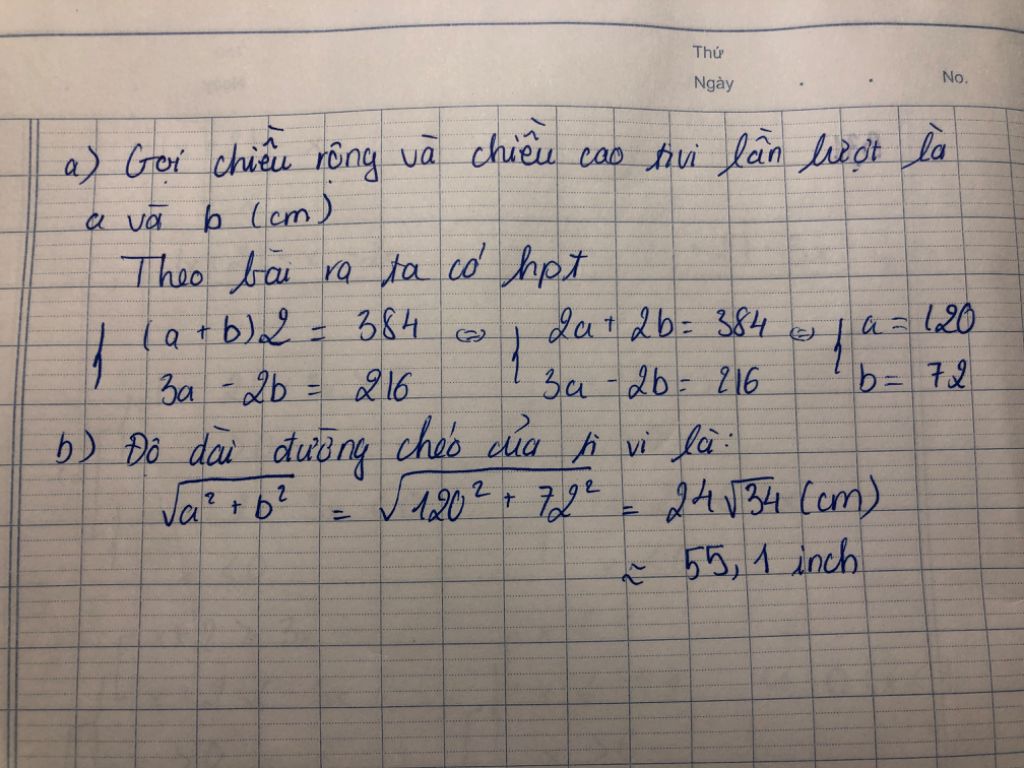 Thứ
Ngày . . No.
a) Gọi chiều rộng và chiều cao tivi lần lượt là
a và b (cm)
Theo bài ra ta có hpt
{ (a + b)2 = 384 ⇔ { 2a + 2b = 384 ⇔ { a = 120
3a - 2b = 216 3a - 2b = 216 b = 72
b) Độ dài đường chéo của ti vi là:
√a² + b² = √120² + 72² = 24√34 (cm)
≈ 55,1 inch